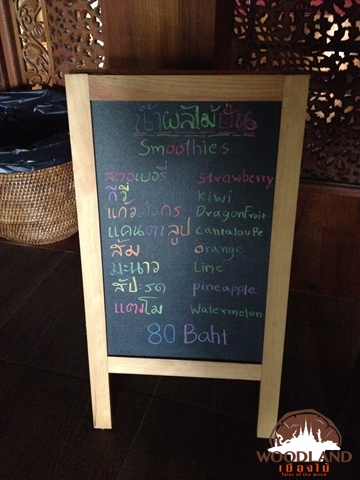 น้ำผลไม้ปั่น
Smoothies
สตอเบอรี่ strawberry
กีวี่ Kiwi
แก้วมังกร DragonFruit
แคนตาลูป Cantaloupe
ส้ม orange
มะนาว Lime
สัปะรด pineapple
แตงโม Watermelon
80 Baht
WOODLAND
เมืองไม้
Tales of the wood